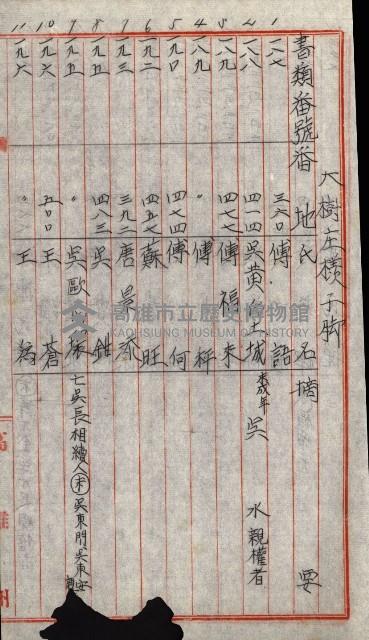 大樹庄檨子脚
書類番號 番地 氏名 摘要
1 一八七 三六〇 傅 語
2 一八八 四一四 吳黃 城 未成年 吳 水 親權者
3 一八九 四七七 傅 福 來
4 一八九 〃 傅 秤
5 一九〇 四七四 傅 何
6 一九二 四五七 蘇 旺
7 一九三 三九二 唐 景 添
8 一九五 四八三 吳 錐
9 一九五 〃 吳 歐 振 亡吳長相續人 吳東門、吳東安
10 一九六 五〇〇 王 蒼
11 一九六 〃 王 為
高雄市立歷史博物館
KAOHSIUNG MUSEUM OF HISTORY
高雄州